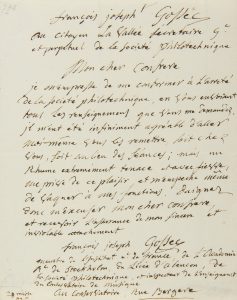 françois joseph Gossec
Au Citoyen La Vallee Secretaire
et perpetuel de la Societe philotechnique
Mon cher Confrere
je m'empresse de me conformer à l'arrêté
de la Societe philotechnique en vous
tous les renseignemens que vous me demandez.
il m'eut été infiniment agréable d'aller
moi-même vous les remettre soit chez
vous, soit au lieu des seances; mais un
Rhume extremement tenace
me prive de ce plaisir et m'empeche même
de vaquer à mes fonctions. daignez
donc m'excuser mon cher confrere,
et recevoir l'assurance de mon sincere et
inviolable attachement
françois joseph Gossec
membre de l'institut de france, de l'Academie
Rle de Stockholm, du Licée d'
Societé philotechnique et inspecteur de l'enseignement
du Conservatoire de musique
Au Conservatoire Rue Bergere